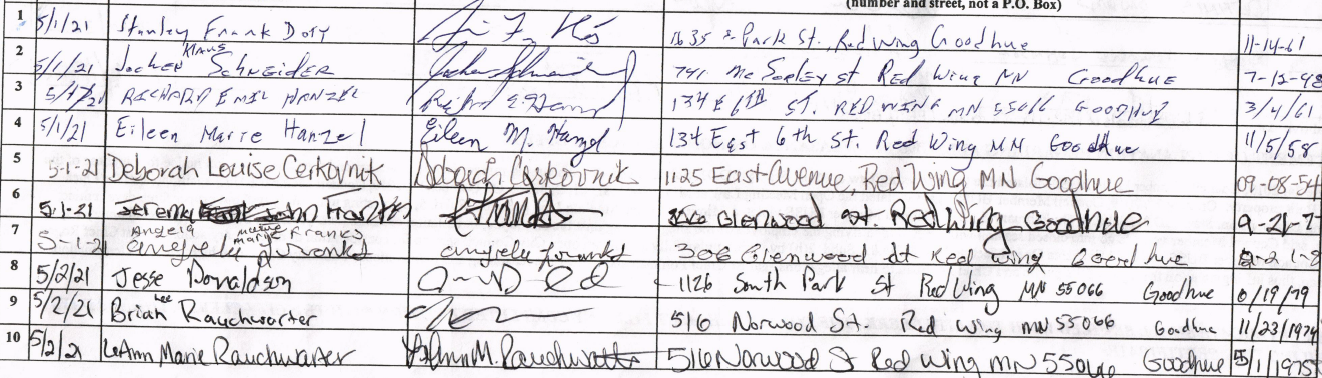 (number and street, not a P.O. Box)
1 5/1/21 Stanley Frank Doty 1635 Park St., Red Wing Goodhue 11-14-61
2 5/1/21 Jochen Klaus Schneider Jochen Schneider 741 Mc Sorley st Red Wing MN Goodhue 7-12-48
3 5/1/21 RICHARD EMIL HANZEL 134 E 6th ST. RED WING MN 55066 GOODHUE 3/4/61
4 5/1/21 Eileen Marie Hanzel Eileen M. Hanzel 134 East 6th St. Red Wing MN Goodhue 11/5/58
5 5-1-21 Deborah Louise Cerkovnik Deborah Cerkovnik 1125 East Avenue, Red Wing MN Goodhue 09-08-54
6 5-1-21 Jeremy John Franks Glenwood st. Red Wing Goodhue 9-21-7
7 5-1-21 Angela Marie Franks angela franks 306 Glenwood st Red wing Goodhue
8 5/2/21 Jesse Donaldson 1126 South Park St Red Wing MN 55066 Goodhue /19/79
9 5/2/21 Brian Lee Rauchwarter 516 Norwood St. Red Wing MN 55066 Goodhue 11/23/1974
10 5/2/21 LeAnn Marie Rauchwarter LeAnn M. Rauchwarter 516 Norwood S Red Wing MN 55066 Goodhue 5/1/1975